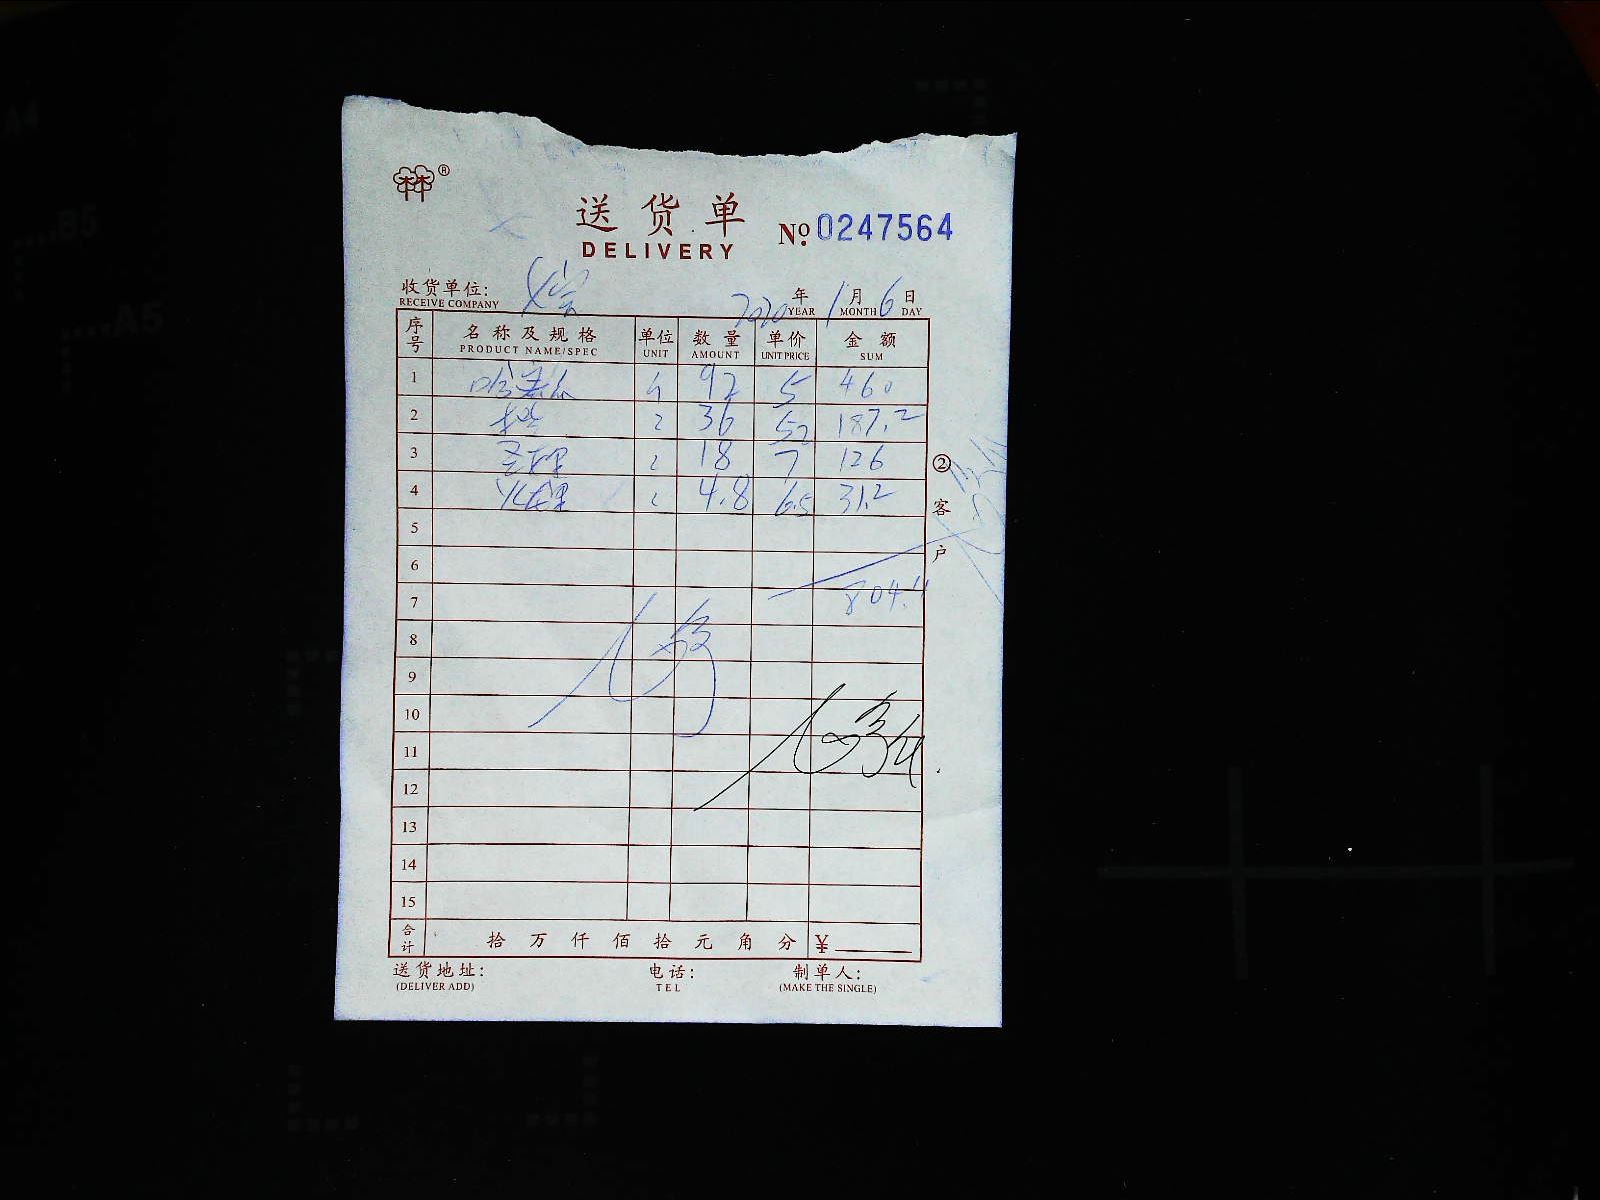 林®
送货单
DELIVERY
№ 0247564
收货单位:
RECEIVE COMPANY
2020 年 1 月 6 日
YEAR MONTH DAY
序号 名称及规格 单位 数量 单价 金额
PRODUCT NAME/SPEC UNIT AMOUNT UNIT PRICE SUM
1 哈密瓜 92 5 460
2 36 52 187.2
3 18 7 126
4 4.8 6.5 31.2
5
6
7 804.4
8
9
10
11
12
13
14
15
② 客户
合计 拾 万 仟 佰 拾 元 角 分 ¥
送货地址: 电话: 制单人:
(DELIVER ADD) TEL (MAKE THE SINGLE)
A4
B5
A5